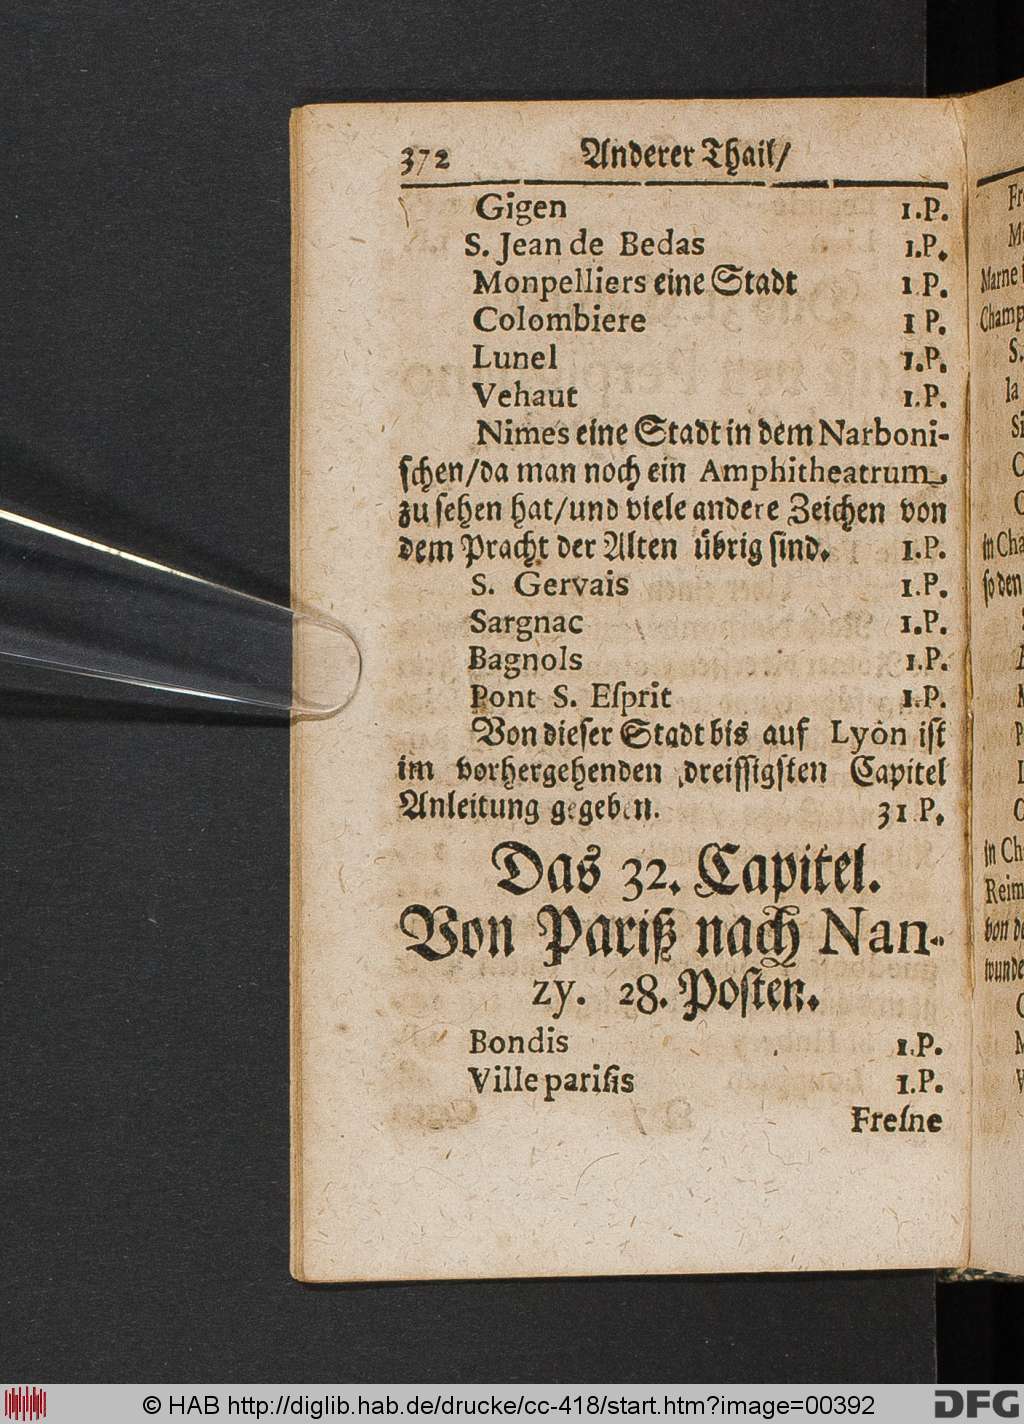 372 Anderer Thail/
Gigen 1.P.
S. Jean de Bedas 1.P.
Monpelliers eine Stadt 1 P.
Colombiere 1 P.
Lunel 1.P.
Vehaut 1.P.
Nimes eine Stadt in dem Narboni-
schen/da man noch ein Amphitheatrum,
zu sehen hat/und viele andere Zeichen von
dem Pracht der Alten übrig sind. 1.P.
S. Gervais 1.P.
Sargnac 1.P.
Bagnols 1.P.
Pont S. Eſprit 1.P.
Von dieser Stadt bis auf Lyon ist
im vorhergehenden dreissigsten Capitel
Anleitung gegeben. 31 P.
Das 32. Capitel.
Von Pariß nach Nan-
zy. 28. Posten.
Bondis 1.P.
Ville pariſis 1.P.
Freſne
Marne
Champ
S.
la
in Cha
so den
in Ch
Reim
von de
wunde
© HAB http://diglib.hab.de/drucke/cc-418/start.htm?image=00392
DFG